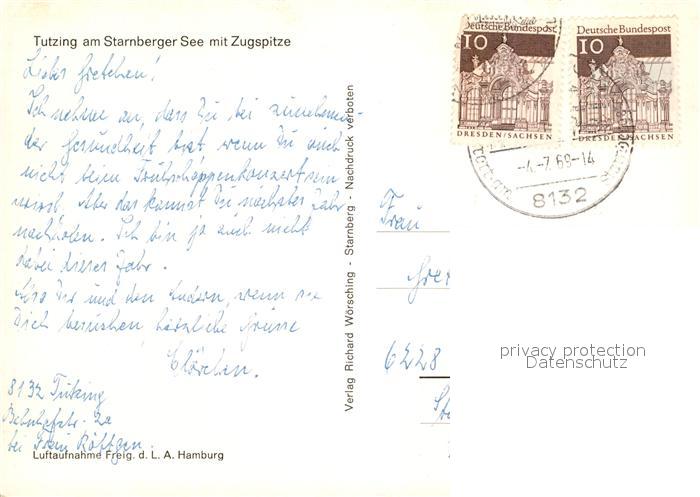 Tutzing am Starnberger See mit Zugspitze
Liebes Gretchen!
Ich nehme an, dass Du bei zunehmen-
der Gesundheit bist, wenn Du auch
nicht beim Frühschoppenkonzert sein
wirst. Aber das kannst Du nächstes Jahr
nachholen. Ich bin ja auch nicht
dabei dieses Jahr.
Also Dir und den andern, wenn sie
Dich besuchen, herzliche Grüsse
Clärchen.
8132 Tutzing
Bahnhofstr. 2a
bei Frau Röttgen
Luftaufnahme Freig. d. L. A. Hamburg
Verlag Richard Wörsching - Starnberg - Nachdruck verboten
Deutsche Bundespost
10
DRESDEN/SACHSEN
Deutsche Bundespost
10
DRESDEN/SACHSEN
-4.-7.69-14
8132
Frau
6228
privacy protection
Datenschutz